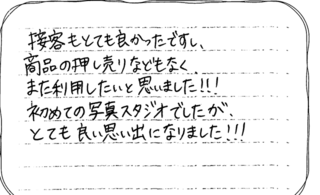 接客もとても良かったですし、
商品の押し売りなどもなく
また利用したいと思いました!!!
初めての写真スタジオでしたが、
とても良い思い出になりました!!!